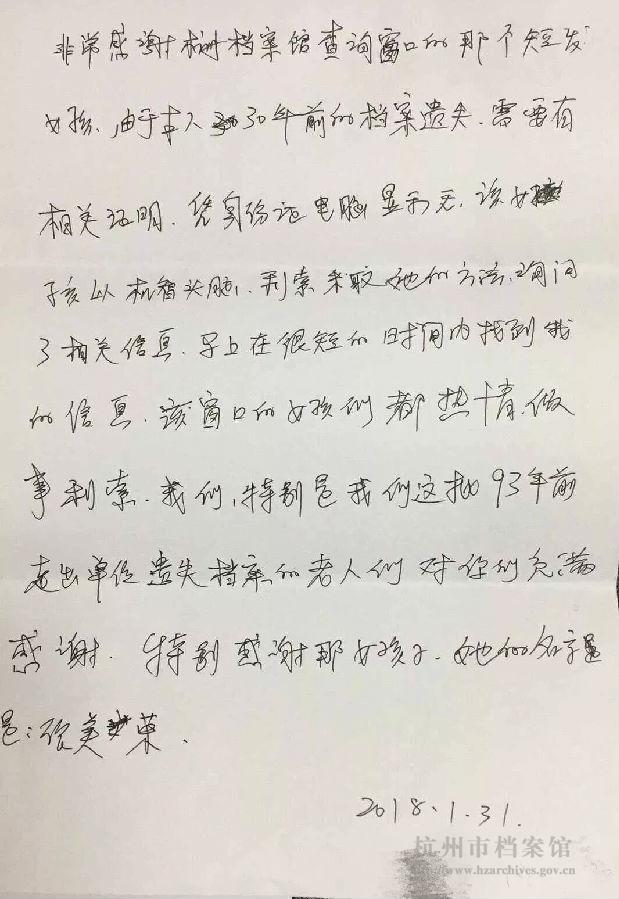 非常感谢杭州档案馆查询窗口的那个短发
女孩,由于本人30年前的档案遗失.需要有
相关证明.凭身份证电脑显示无.该女
孩以机智头脑,利索采取她的方法,询问
了相关信息.马上在很短的时间内找到我
的信息.该窗口的女孩们都热情,做
事利索.我们,特别是我们这批93年前
走出单位遗失档案的老人们对你们充满
感谢.特别感谢那女孩子.她的名字是
是:张美荣.
2018.1.31.
杭州市档案馆
www.hzarchives.gov.cn